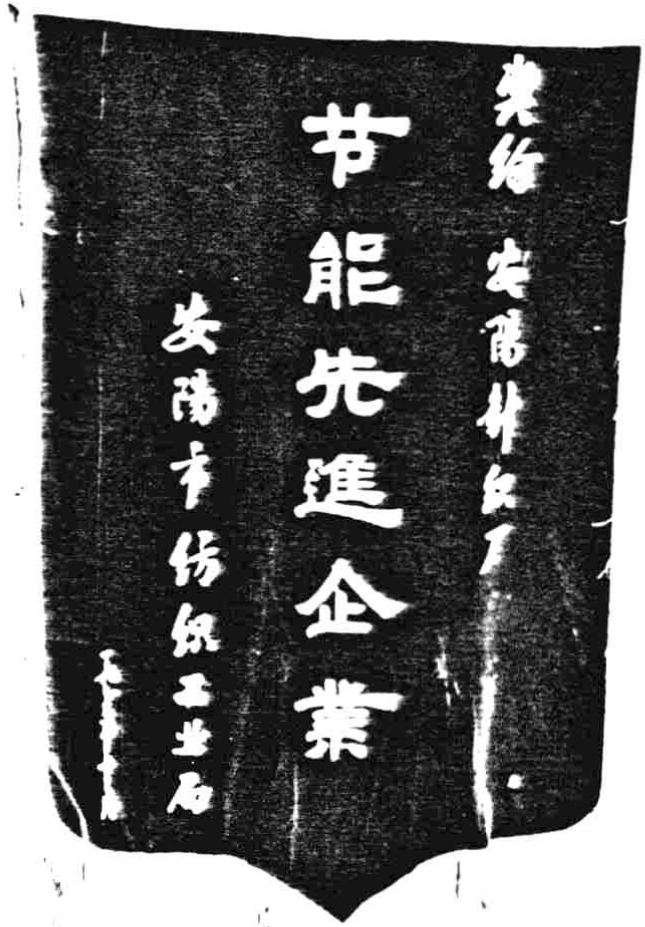 奖给 安陽针织厂
节能先進企業
安陽市纺织工业局